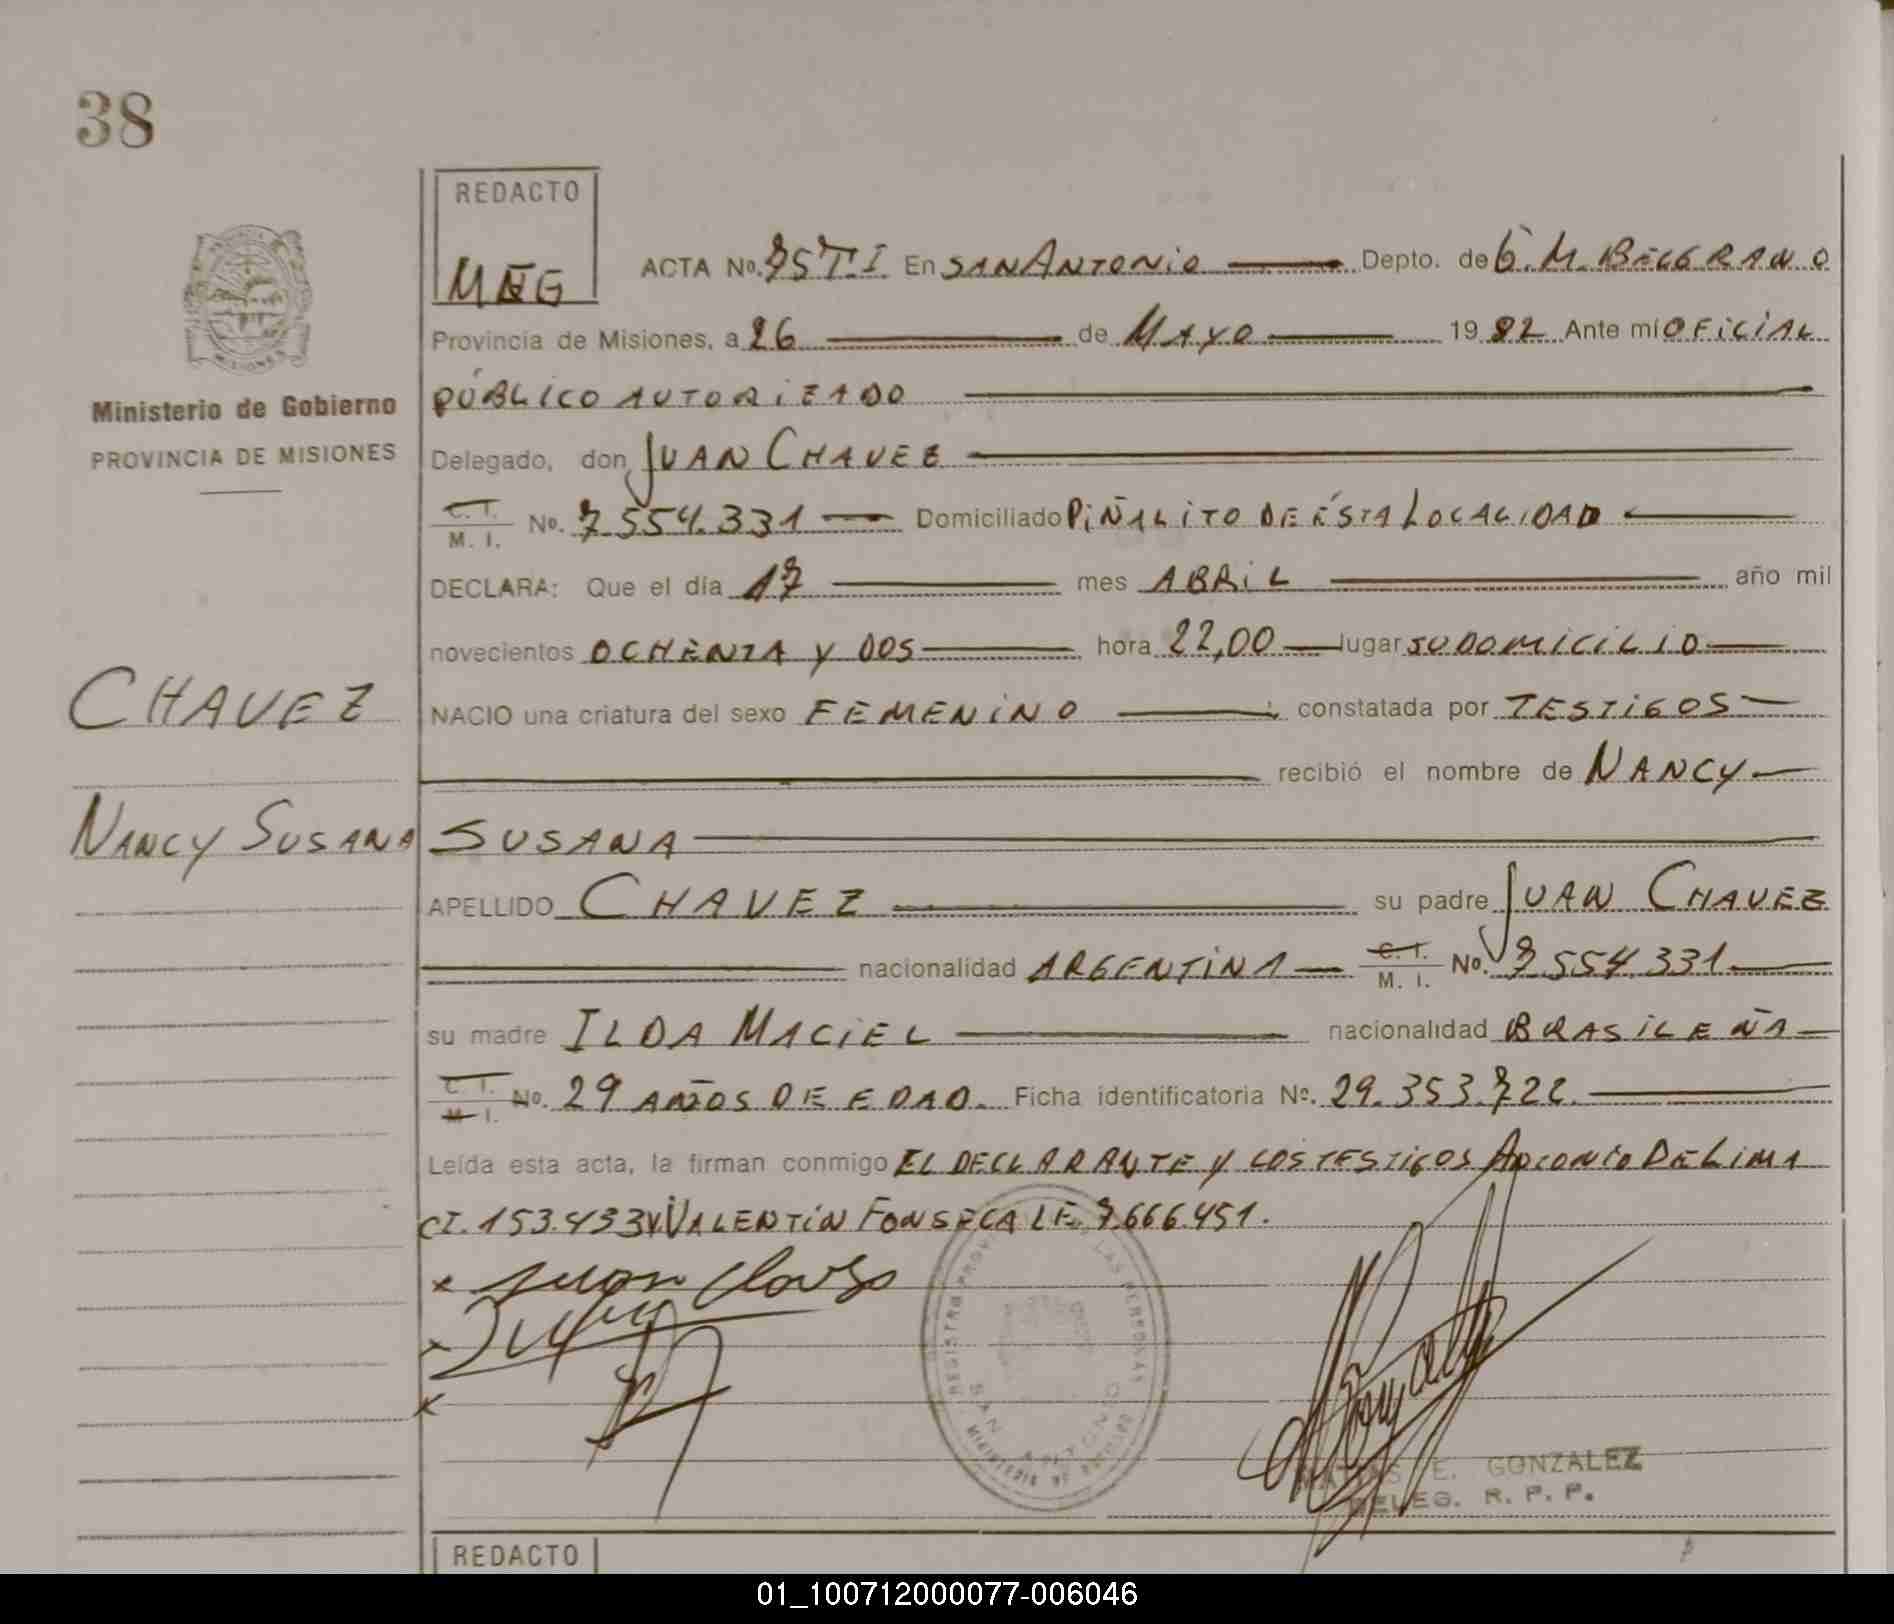 38
REDACTO
MEG
ACTA No. 75 T.I En SAN ANTONIO Depto. de G. M. BELGRANO
Provincia de Misiones, a 26 de MAYO 1982 Ante mi OFICIAL
Ministerio de Gobierno
PÚBLICO AUTORIZADO
PROVINCIA DE MISIONES
Delegado, don JUAN CHAVEZ
C. I.
M. I. No. 7.554.331 Domiciliado PIÑALITO DE ÉSTA LOCALIDAD
DECLARA: Que el día 17 mes ABRIL año mil
novecientos OCHENTA Y DOS hora 22,00 lugar SU DOMICILIO
CHAVEZ
NACIO una criatura del sexo FEMENINO constatada por TESTIGOS
recibió el nombre de NANCY
NANCY SUSANA
SUSANA
APELLIDO CHAVEZ su padre JUAN CHAVEZ
nacionalidad ARGENTINA C. I.
M. I. No. 7.554.331
su madre ILDA MACIEL nacionalidad BRASILEÑA
C. I.
M. I. No. 29 AÑOS DE EDAD. Ficha identificatoria No. 29.353.722.
Leída esta acta, la firman conmigo EL DECLARANTE Y LOS TESTIGOS ANTONIO DE LIMA
CI. 153.433 Y VALENTIN FONSECA LE 7.666.451.
REGISTRO PROV LAS PERSONAS
SAN ANTONIO
MINISTERIO DE GOBIERNO
MATIAS E. GONZALEZ
DELEG. R. P. P.
REDACTO
01_100712000077-006046